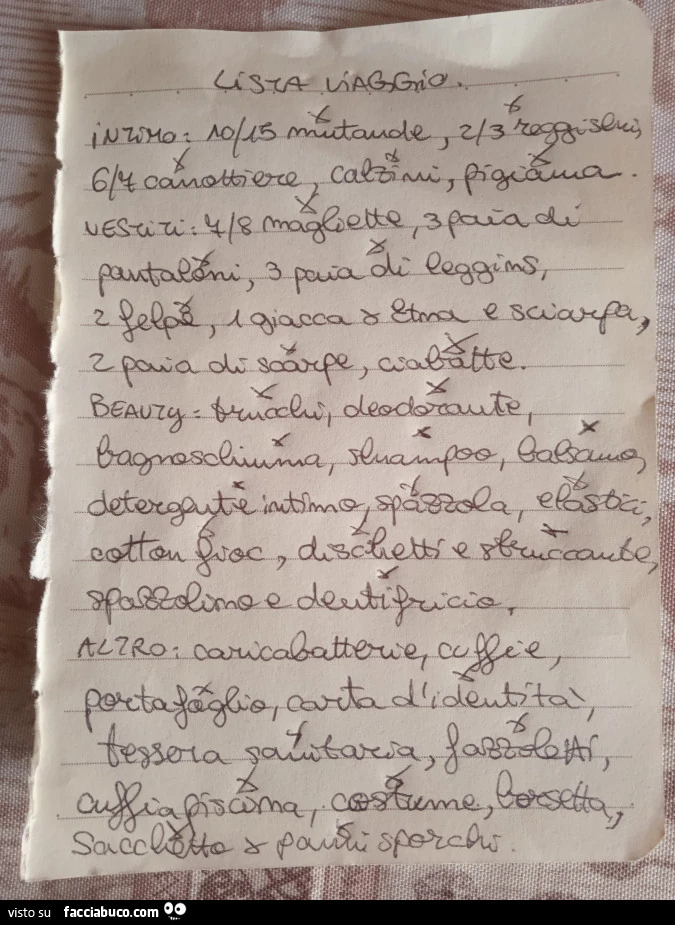 LISTA VIAGGIO.
INTIMO: 10/15 mutande, 2/3 reggiseni,
6/7 canottiere, calzini, pigiama.
VESTITI: 7/8 magliette, 3 paia di
pantaloni, 3 paia di leggins,
2 felpe, 1 giacca x Etna e sciarpa,
2 paia di scarpe, ciabatte.
BEAUTY: trucchi, deodorante,
bagnoschiuma, shuampoo, balsamo,
detergente intimo, spazzola, elastici,
cotton fioc, dischetti e struccante,
spazzolino e dentifricio,
ALTRO: caricabatterie, cuffie,
portafoglio, carta d'identità,
tessera sanitaria, fazzoletti,
cuffia piscina, costume, borsetta,
Sacchetto x panni sporchi.
visto su facciabuco.com